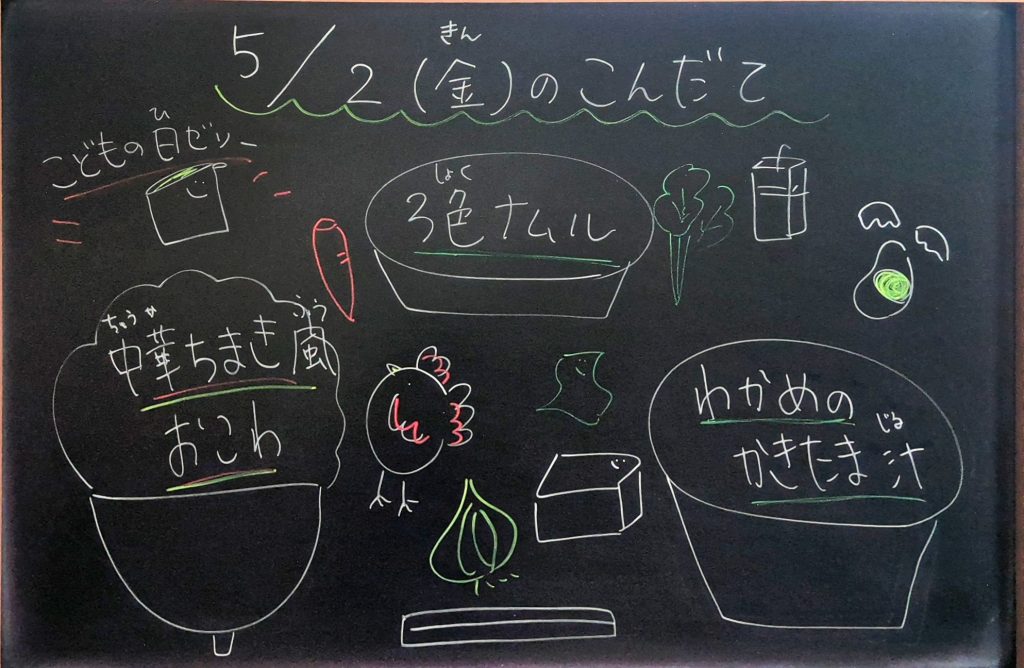 5/2(金)のこんだて
きん
こどもの日ゼリー
ひ
3色ナムル
しょく
中華ちまき風
ちゅうか
ふう
おこわ
わかめの
かきたま汁
じる